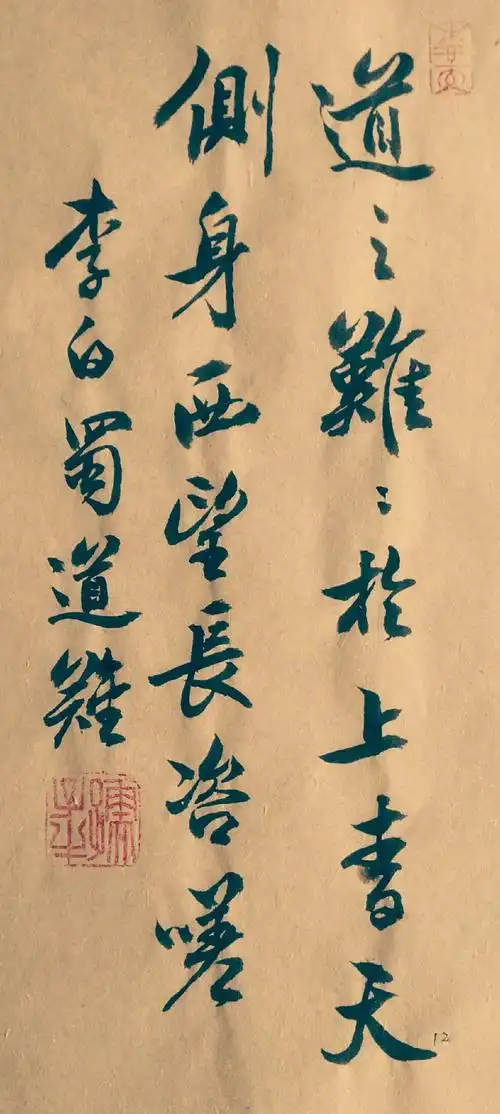 道之難〻於上青天
側身西望長咨嗟
李白蜀道難
12